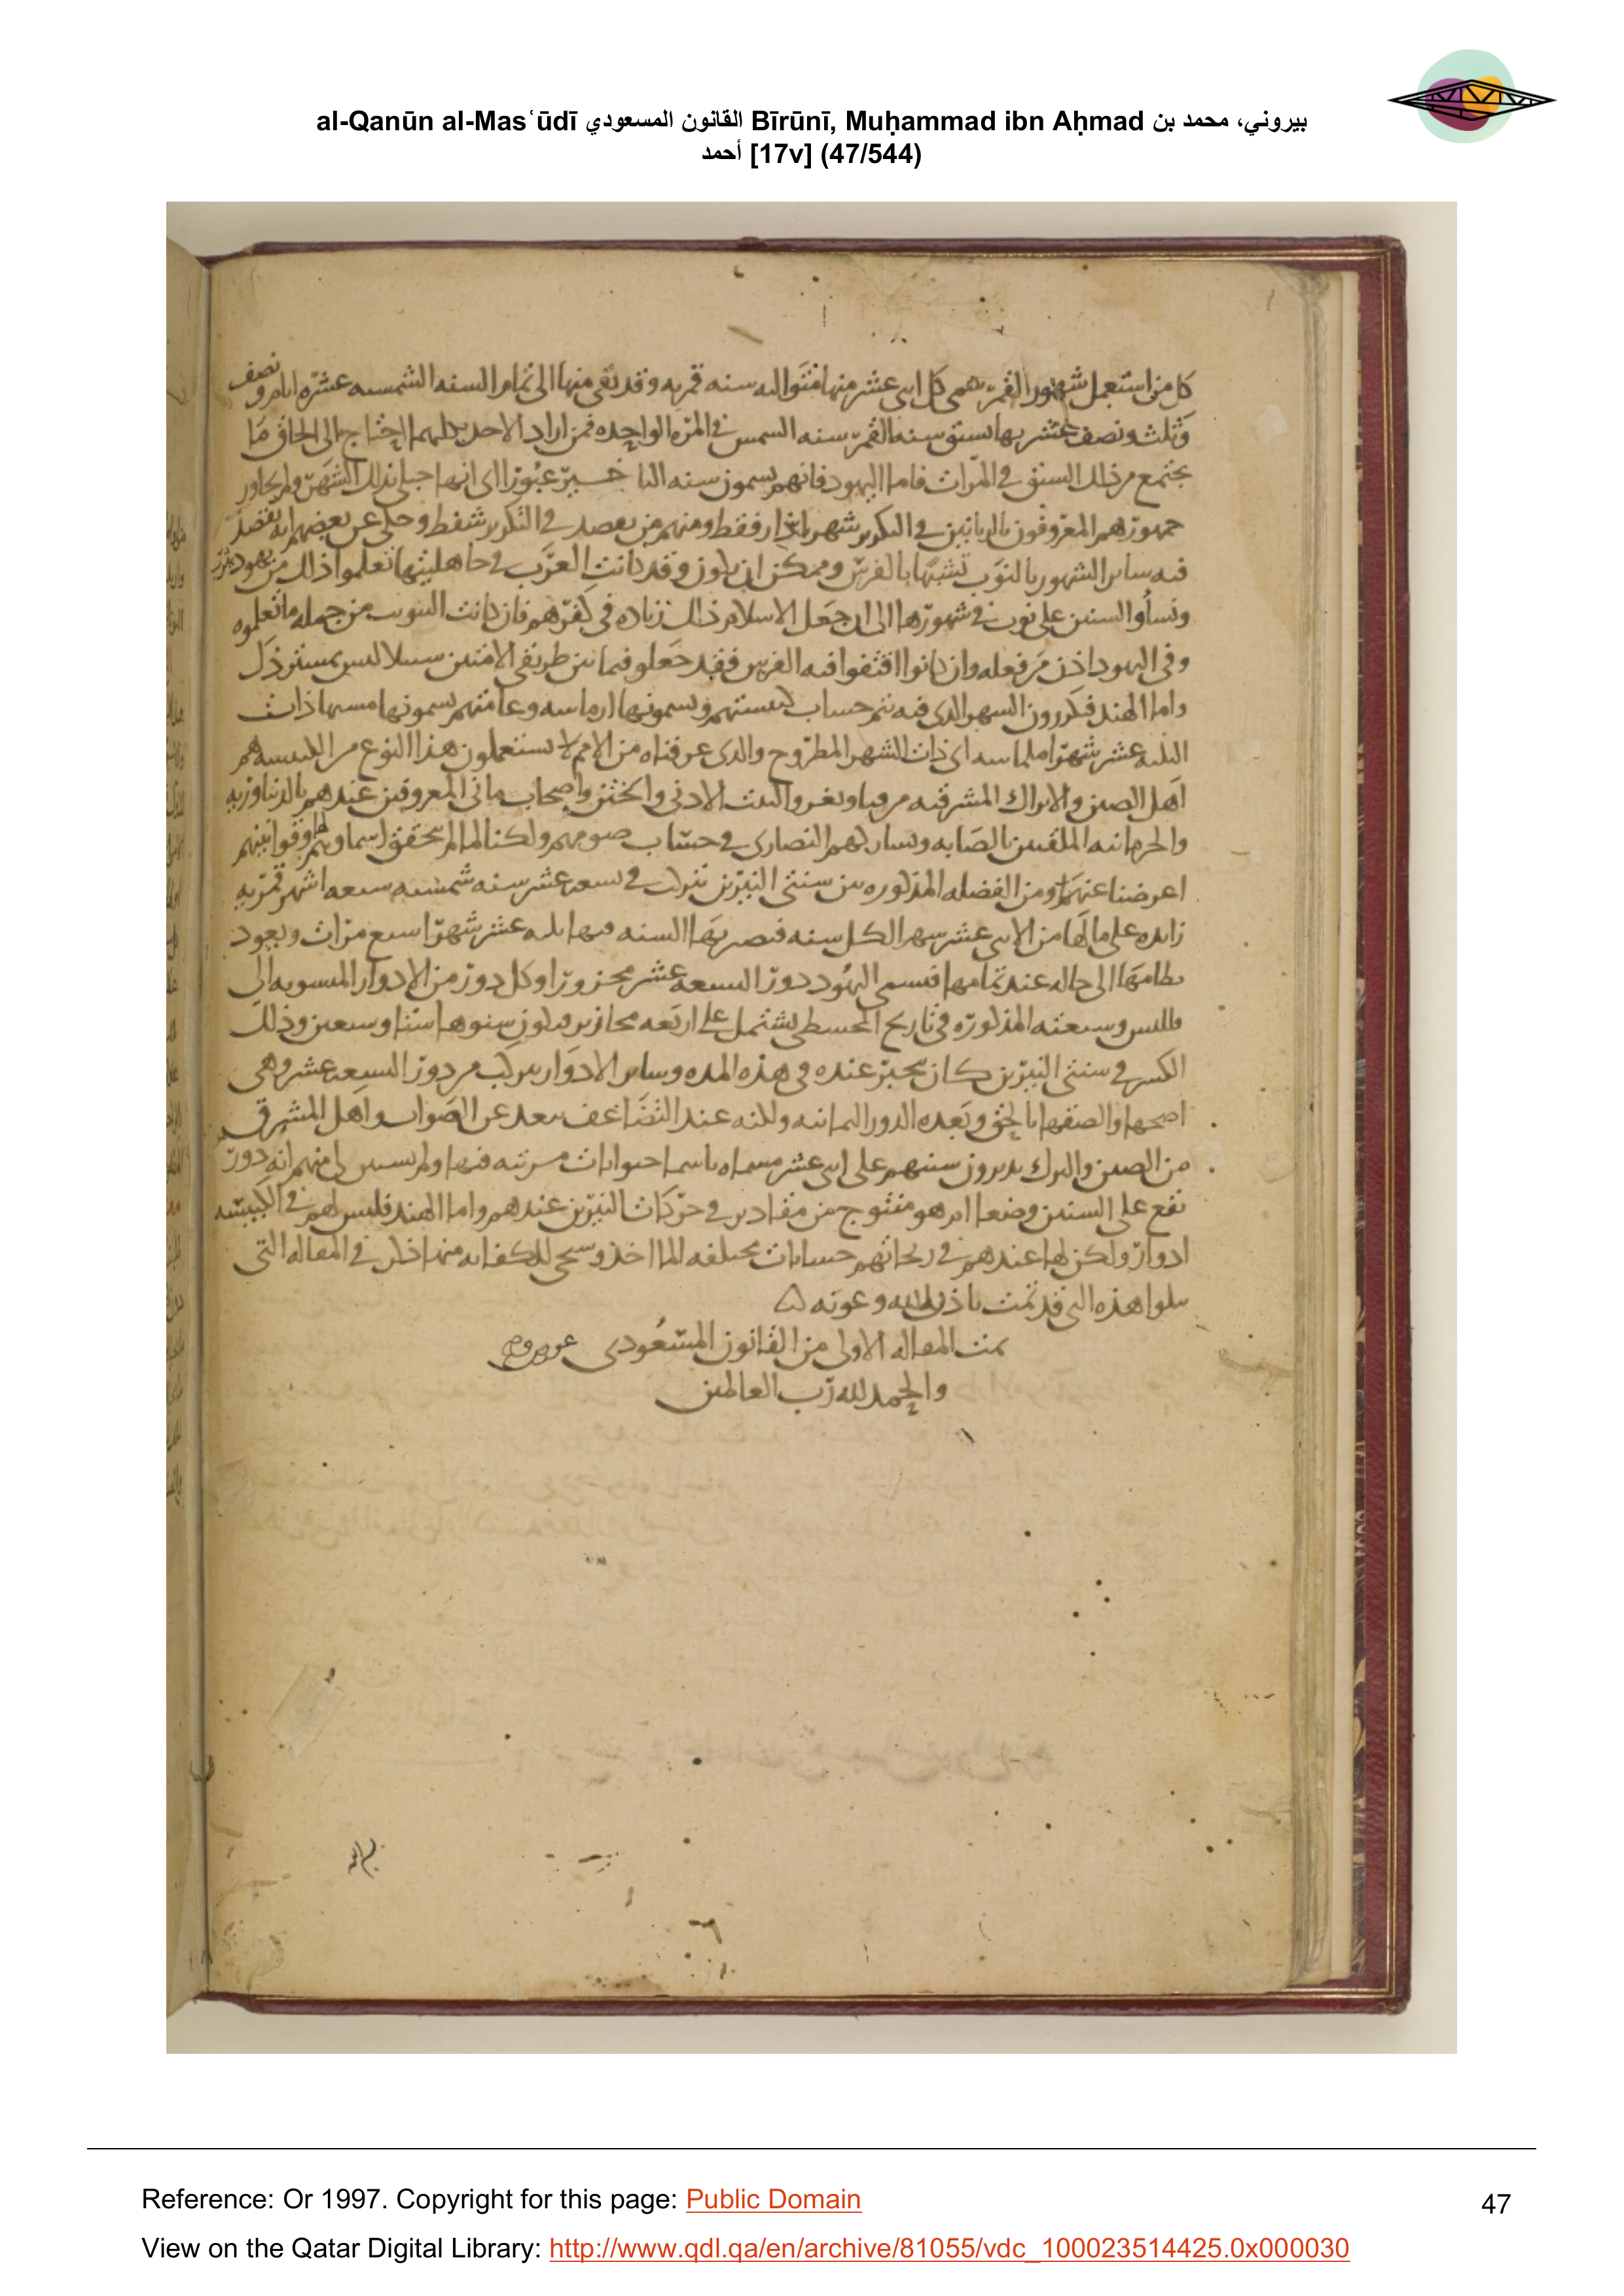 al-Qanūn al-Masʿūdī القانون المسعودي Bīrūnī, Muḥammad ibn Aḥmad بيروني، محمد بن
أحمد [17v] (47/544)
كل من استعمل شهور القمر سمى كل اثنى عشر منها متواليه سنه قمريه وقد بقى منها الى تمام السنه الشمسيه عشره ايام ونصف
وثلث ونصف عشر بها تسبق سنه القمر سنه الشمس فى المره الواحده فمن اراد الاحد بكليهما احتاج الى الحاق ما
يجتمع من ذلك السبق فى المرات فاما اليهود فانهم يسمون سنه عبورا اى انها حبلى بذلك الشهر ولم يجاوز
جمهورهم المعروفون بالربانيين فى التكرير شهر اذار فقط ومنهم من يقصد فى التكرير شفط وحكى عن بعضهم انه يقصد
فيه ساير الشهور بالنوب تشبها بالفرس وممكن ان يكون وقد كانت العرب فى جاهليتها تعلموا ذلك من يهود يثرب
ونسأوا السنين على نوب فى شهورها الى ان جعل الاسلام ذلك زياده فى كفرهم فان كانت النوب من جمله ما تعلموه
وفى اليهود اذن من فعله وان كانوا اقتفوا فيه الفرس فقد جعلو فيما بين طريقى الامتين سبيلا ليس بمستر ذل
واما الهند فيكررون الشهر الذى فيه يتم حساب كبيستهم ويسمونها ادماسه وعامتهم يسمونها ذات
الثلثه عشر شهرا اى ذات الشهر المطروح والذى عرفناه من الامم لا يستعملون هذا النوع من الكبيسه هم
اهل الصين والاتراك المشرقيه والتبت الادنى والختن واصحاب مانى المعروفين عندهم بالديناوريه
والحرنانيه الملقبين بالصابه النصارى فى حساب صومهم ولكنا لما لم نحقق اسماوهم وقوانينهم
اعرضنا عنهما ومن الفضله المذكوره بين سنتى النيرين يتركب فى تسعه عشر سنه شمسيه سبعه اشهر قمريه
زايده على مالها من الاثنى عشر شهر الكل سنه فتصير بها السنه فيها ثلثه عشر شهرا سبع مرات ويعود
نظامها الى حاله عند تمامها فسمى اليهود دور التسعه عشر محزورا وكل دور من الادوار المنسوبه الى
وسبعته المذكوره فى تاريخ المجسطى يشتمل على اربعه محازير ويكون سنوها ستا وسبعين وذلك
الكسر فى سنتى النيرين كان ينجبر عنده فى هذه المده وساير الادوار يتركب من دور التسعه عشر وهى
اصحها والصقها بالحق وبعده الدور الثمانيه ولكنه عند التضاعف يبعد عن الصواب واهل المشرق
من الصين والترك يديرون سنيهم على اثنى عشر مسماه باسما حيوانات مرتبه فيها ولم يتبين لى منهم انه دور
يقع على السنين وضعا ام هو منتوج من مقادير فى حركات النيرين عندهم واما الهند فليس لهم فى الكبيسه
ادوار ولكن لها عندهم فى زيجاتهم حسابات مختلفه المااخذ وسيجى للكفايه منها ذكر فى المقاله التى
يتلوا هذه التى قد تمت باذن الله وعونه
تمت المقاله الاولى من القانون المسعودى
والحمد لله رب العالمين
Reference: Or 1997. Copyright for this page: Public Domain
47
View on the Qatar Digital Library: http://www.qdl.qa/en/archive/81055/vdc_100023514425.0x000030